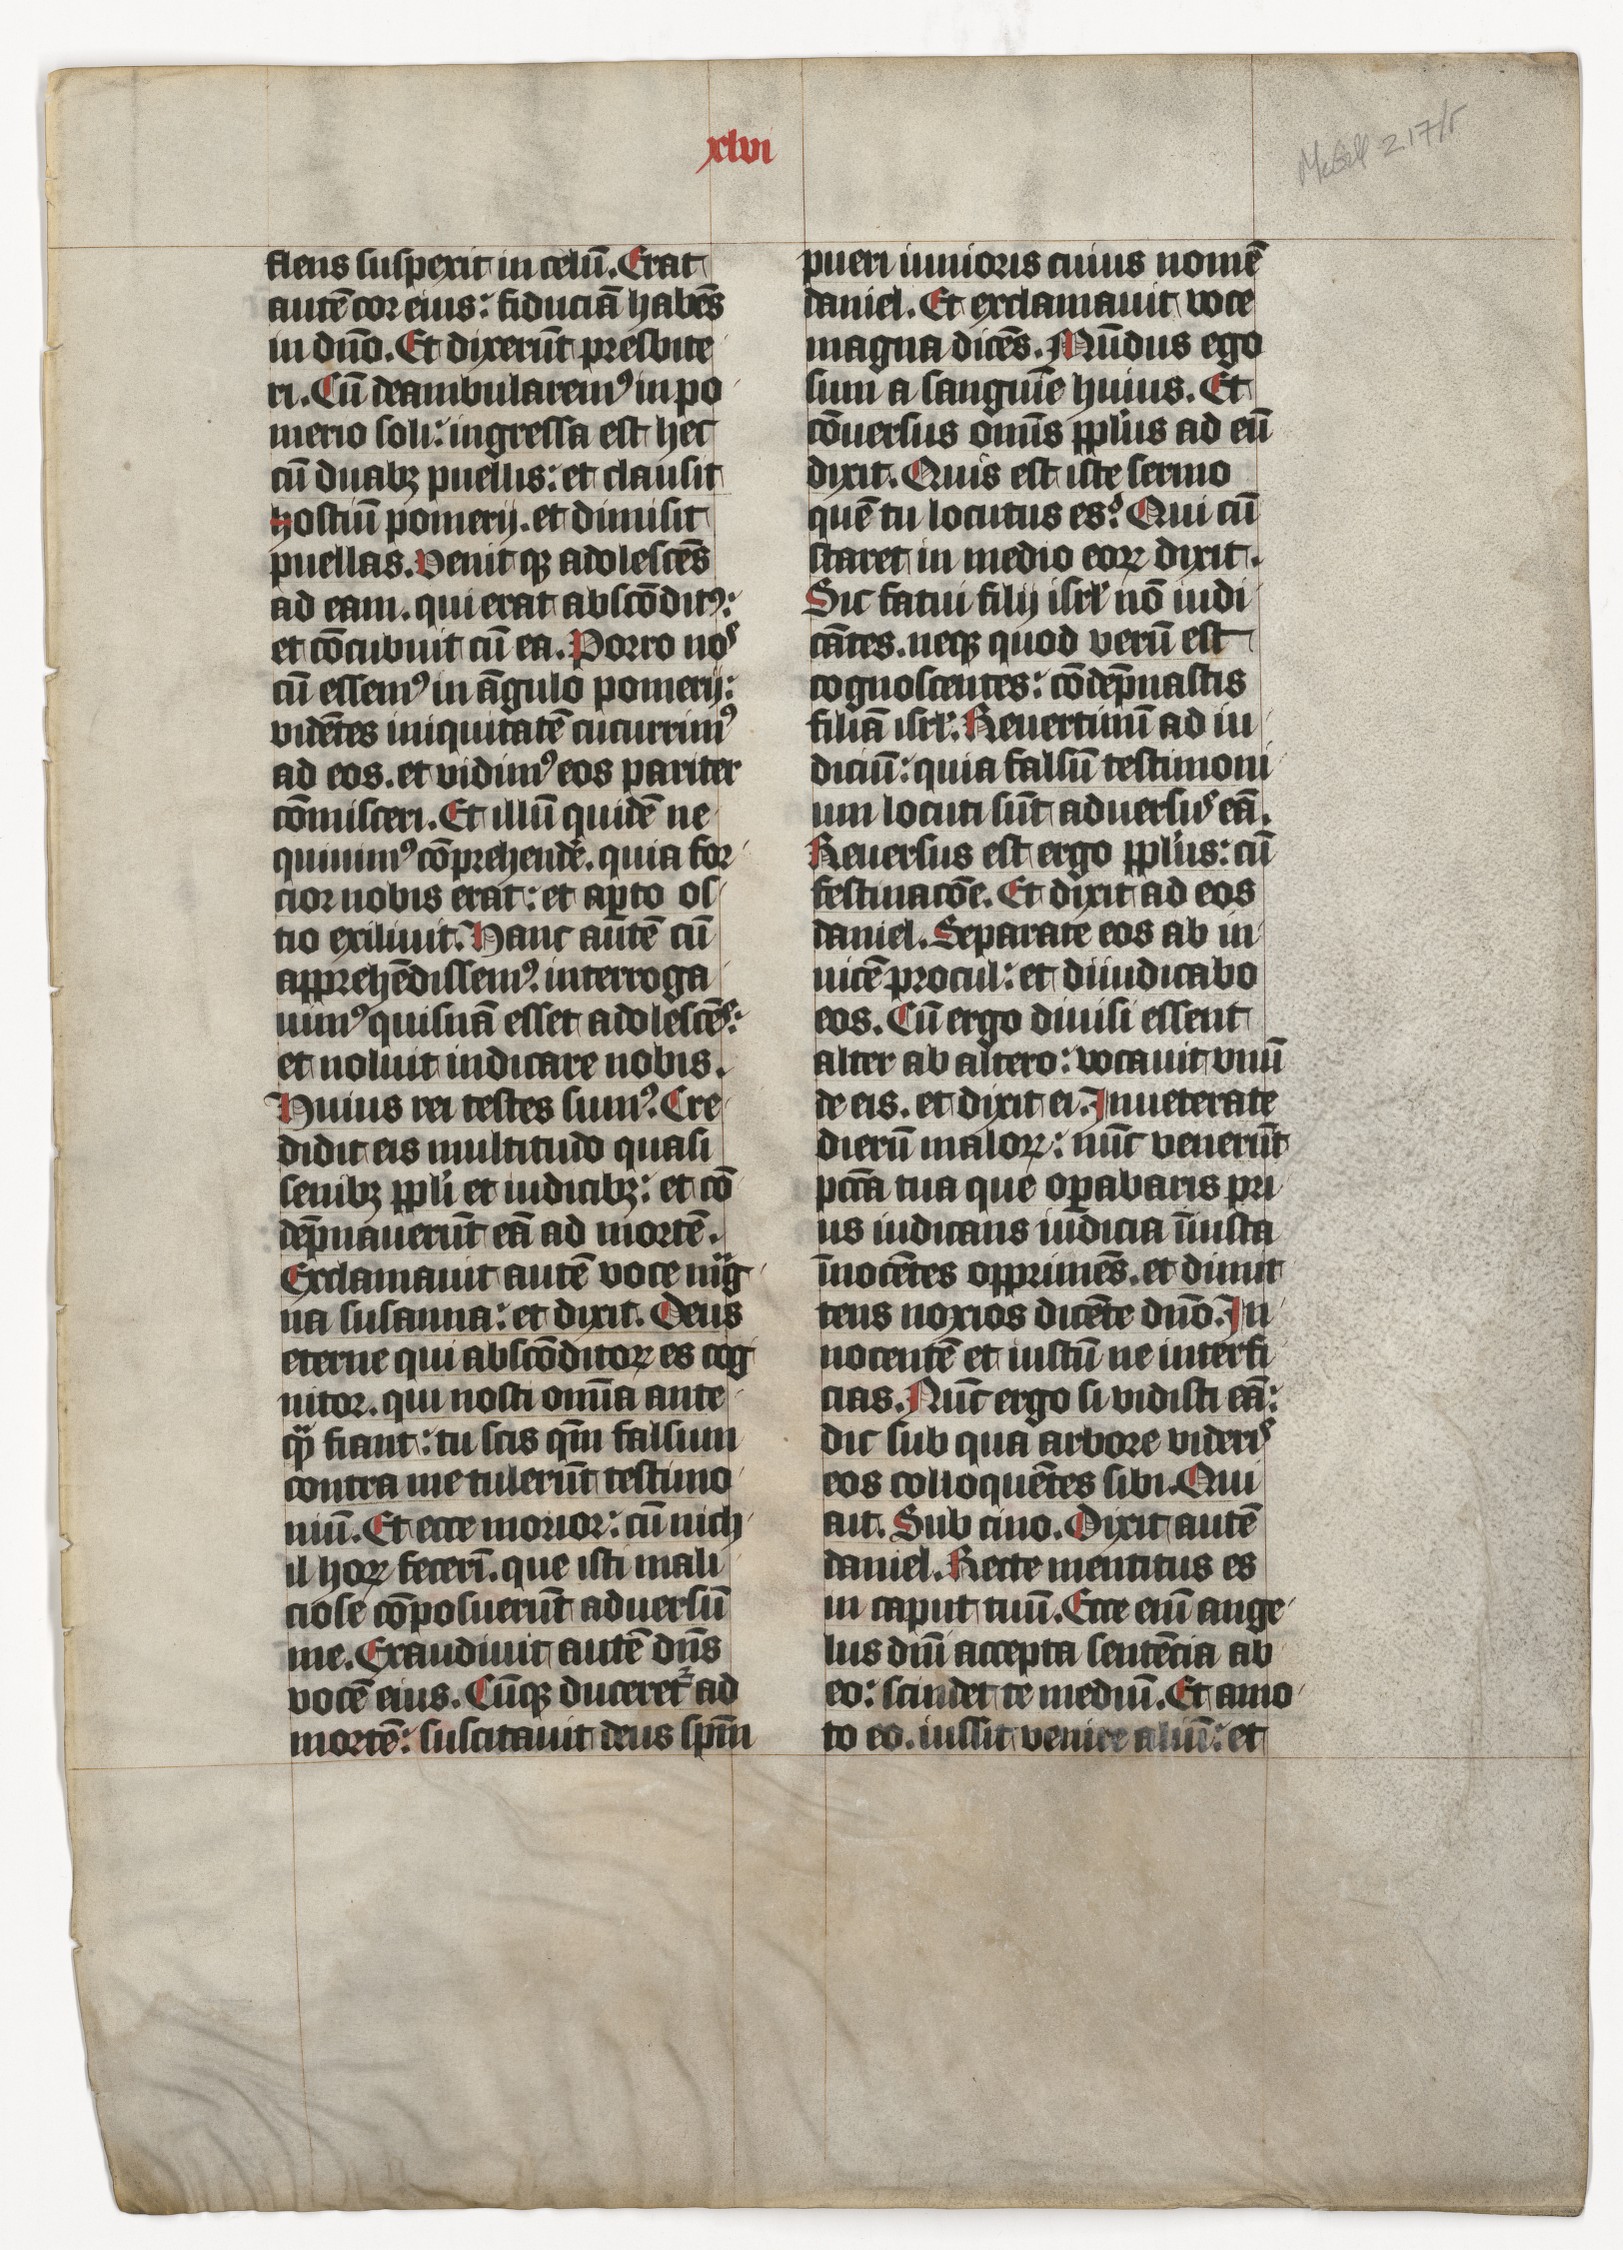 xlvi
McGill 217/r
flens suspexit in celū. Erat
autē cor eius: fiduciā habēs
in dn̄o. Et dixerūt presbite
ri. Cū deambularemꝰ in po
merio soli: ingressa est hec
cū duabꝫ puellis: et clausit
hostiū pomerij. et dimisit
puellas. Venit qꝫ adolescēs
ad eam. qui erat abscōditꝰ:
et cōcubuit cū ea. Porro nos
cū essemꝰ in āgulo pomerij:
vidētes iniquitatē cucurrimꝰ
ad eos. et vidimꝰ eos pariter
cōmisceri. Et illū quidē ne
quiuimꝰ cōprehendē. quia for
cior nobis erat: et apto os
tio exiliuit. Hanc autē cū
apprehēdissemꝰ. interroga
uimꝰ quisnā esset adolescēs:
et noluit indicare nobis.
Huius rei testes sumꝰ. Cre
didit eis multitudo quasi
senibꝫ ppli et iudicibꝫ: et cō
dēpnauerūt eā ad mortē.
Exclamauit autē voce mag
na susanna: et dixit. Deus
eterne qui abscōditoꝝ es cog
nitor. qui nosti om̄ia ante
qͣꝫ fiant: tu scis qm̄ falsum
contra me tulerūt testimo
niū. Et ecce morior: cū nich
il hoꝝ fecerī. que isti mali
ciose cōposuerūt aduersū
me. Exaudiuit autē dn̄s
vocē eius. Cūqꝫ duceret᷑ ad
mortē: suscitauit deus spm̄
pueri iunioris cuius nomē
daniel. Et exclamauit voce
magna dicēs. Mūdus ego
sum a sanguīe huius. Et
cōuersus omīs pplūs ad eū
dixit. Quis est iste sermo
quē tu locutus es? Qui cū
staret in medio eoꝝ dixit.
Sic fatui filij isrl̄ nō iudi
cātes. neqꝫ quod verū est
cognoscentes: cōdēpnastis
filiā isrl̄. Reuertimī ad iu
diciū: quia falsū testimoni
um locuti sūt aduersus eā.
Reuersus est ergo pplūs: cū
festinacōe. Et dixit ad eos
daniel. Separate eos ab in
uicē procul: et diiudicabo
eos. Cū ergo diuisi essent
alter ab altero: vocauit vnū
de eis. et dixit ei. Inueterate
dierū maloꝝ: nūc venerūt
pccā tua que oꝑabaris pri
us iudicans iudicia īiusta
īnocētes opprimēs. et dimit
tens noxios dicēte dn̄o. In
nocentē et iustū ne interfi
cias. Nūc ergo si vidisti eā:
dic sub qua arbore videris
eos colloquētes sibi. Qui
ait. Sub cino. Dixit autē
daniel. Recte mentitus es
in caput tuū. Ecce eniī ange
lus dn̄i accepta sentēcia ab
eo: scindet te mediū. Et amo
to eo. iussit venire aliū: et